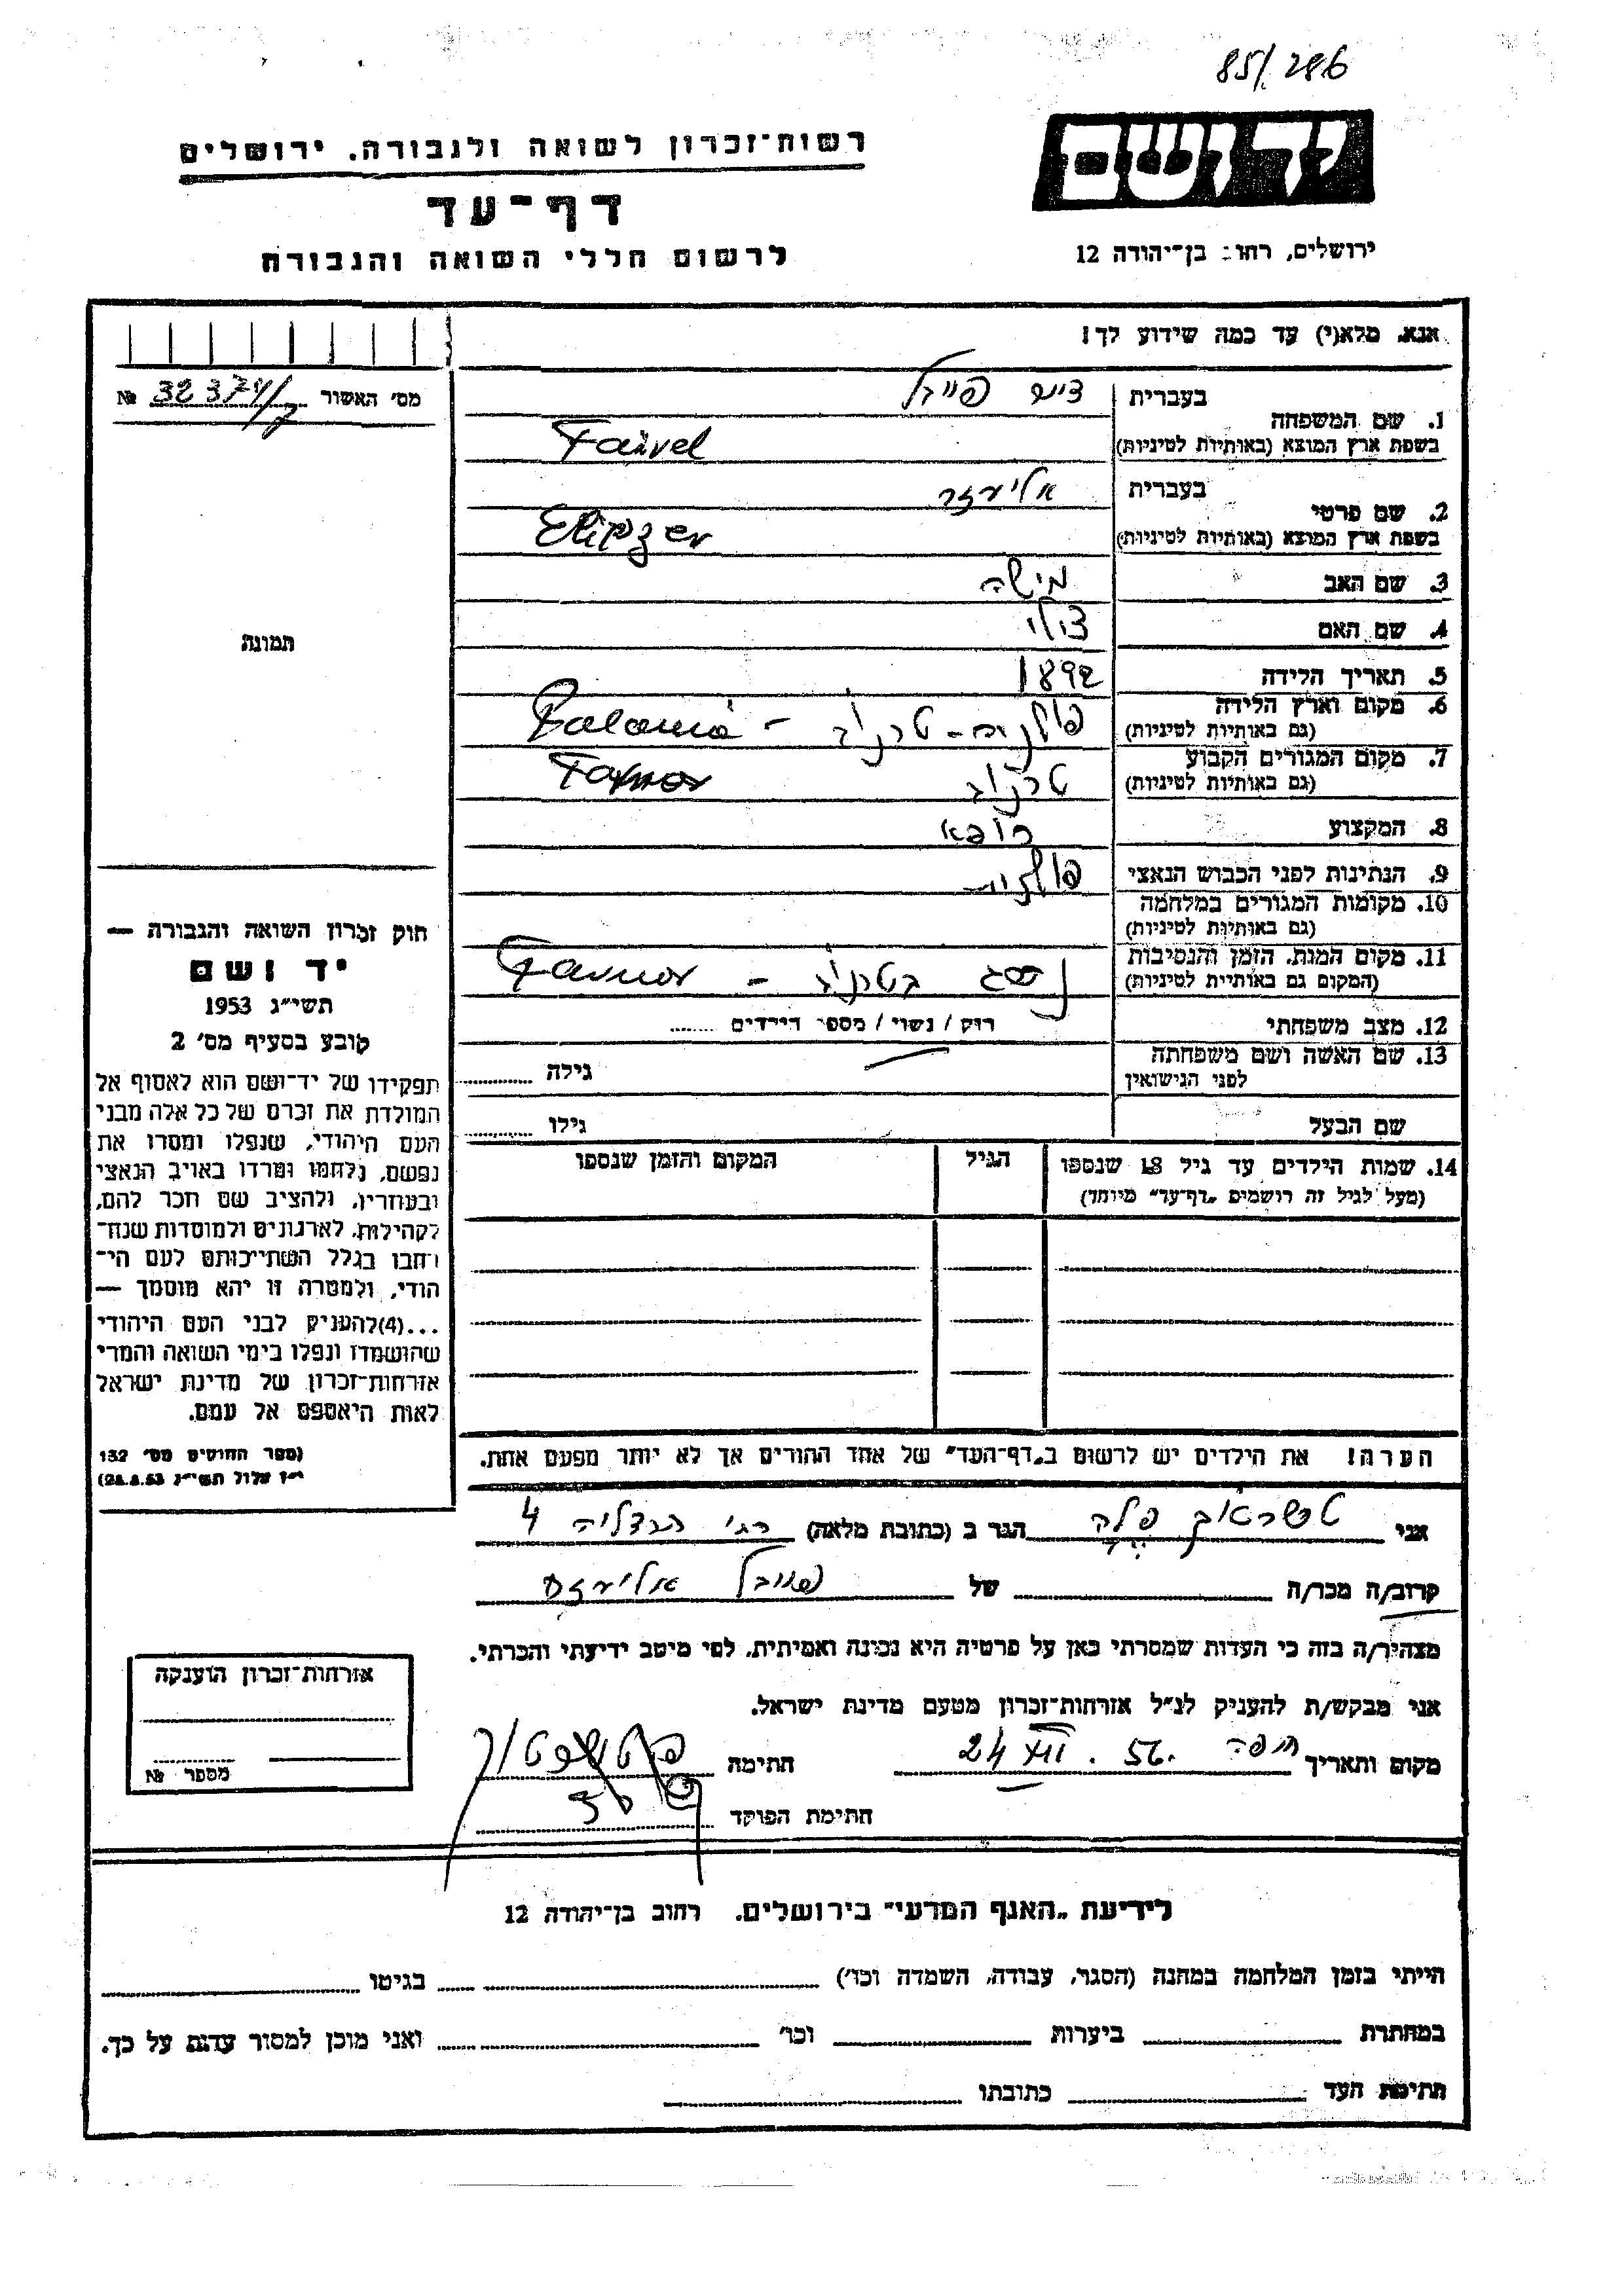 85/286
יד ושם
רשות־זכרון לשואה ולגבורה, ירושלים
דף־עד
לרשום חללי השואה והגבורה
ירושלים, רחוב בן־יהודה 12
אנא, מלא(י) עד כמה שידוע לך!
מס' האשור № 32374/
1. שם המשפחה
בעברית פייבל
בשפת ארץ המוצא (באותיות לטיניות) Faivel
2. שם פרטי
בעברית אליעזר
בשפת ארץ המוצא (באותיות לטיניות) Eliezer
3. שם האב מישה
4. שם האם צילי
תמונה
5. תאריך הלידה 1892
6. מקום וארץ הלידה פולניה - טרנוב -
(גם באותיות לטיניות)
7. מקום המגורים הקבוע טרנוב
(גם באותיות לטיניות)
8. המקצוע רופא
9. הנתינות לפני הכבוש הנאצי פולנית
10. מקומות המגורים במלחמה
(גם באותיות לטיניות)
11. מקום המות, הזמן והנסיבות בטרנוב -
(המקום גם באותיות לטיניות)
12. מצב משפחתי רוק / נשוי / מספר הילדים
13. שם האשה ושם משפחתה
לפני הנישואין גילה
שם הבעל גילו
14. שמות הילדים עד גיל 18 שנספו הגיל המקום והזמן שנספו
(מעל לגיל זה רושמים „דף־עד" מיוחד)
הערה! את הילדים יש לרשום ב„דף־העד" של אחד ההורים אך לא יותר מפעם אחת.
חוק זכרון השואה והגבורה —
יד ושם
תשי"ג 1953
קובע בסעיף מס' 2
תפקידו של יד־ושם הוא לאסוף אל
המולדת את זכרם של כל אלה מבני
העם היהודי, שנפלו ומסרו את
נפשם, נלחמו ומרדו באויב הנאצי
ובעוזריו, ולהציב שם וזכר להם,
לקהילות, לארגונים ולמוסדות שנח־
רבו בגלל השתייכותם לעם הי־
הודי, ולמטרה זו יהא מוסמך —
...(4)להעניק לבני העם היהודי
שהושמדו ונפלו בימי השואה והמרי
אזרחות־זכרון של מדינת ישראל
לאות היאספם אל עמם.
(ספר החוקים מס' 132
י"ז אלול תשי"ג 28.8.53)
אני הגר ב (כתובת מלאה) 4
קרוב/ה מכר/ה של פייבל אליעזר
מצהיר/ה בזה כי העדות שמסרתי כאן על פרטיה היא נכונה ואמיתית, לפי מיטב ידיעתי והכרתי.
אני מבקש/ת להעניק לנ"ל אזרחות־זכרון מטעם מדינת ישראל.
מקום ותאריך חיפה 24 XII. 56. חתימה
חתימת הפוקד
אזרחות־זכרון הוענקה
מספר №
לידיעת „האגף המדעי" בירושלים, רחוב בן־יהודה 12
הייתי בזמן המלחמה במחנה (הסגר, עבודה, השמדה וכו') בגיטו
במחתרת ביערות וכו' ואני מוכן למסור עדות על כך.
חתימת העד כתובתו